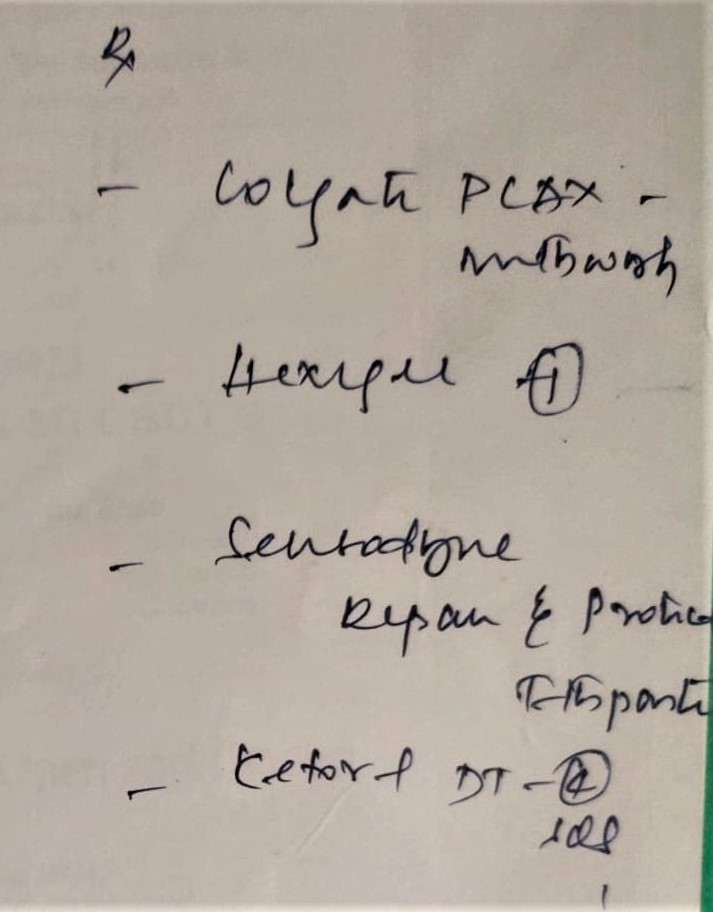 Rx
- Colgate PLAX -
mouthwash
- Hexigel ①
- Sensodyne
Repair & Protec
Toothpaste
- Ketorol DT - ④
SOS